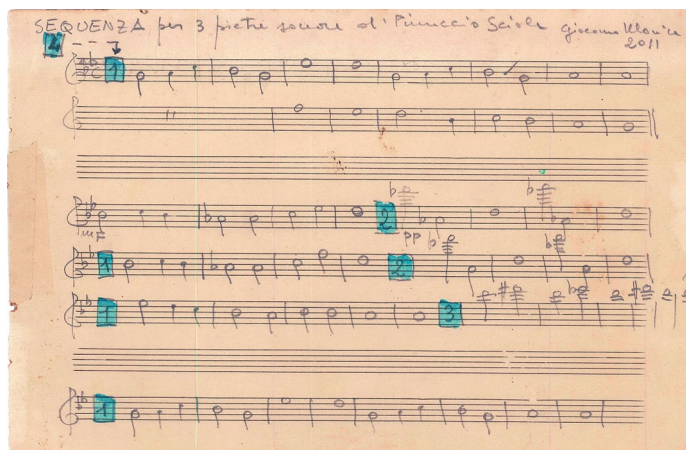 SEQUENZA per 3 pietre sonore di Pinuccio Sciola giacomo
2 2011
1
2
mF pp
1 2
1 3
1